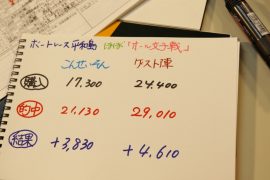 ボートレース平和島 「オール女子戦」
こんせいそん ゲスト陣
購入 17,300 24,400
的中 21,130 29,010
結果 +3,830 +4,610